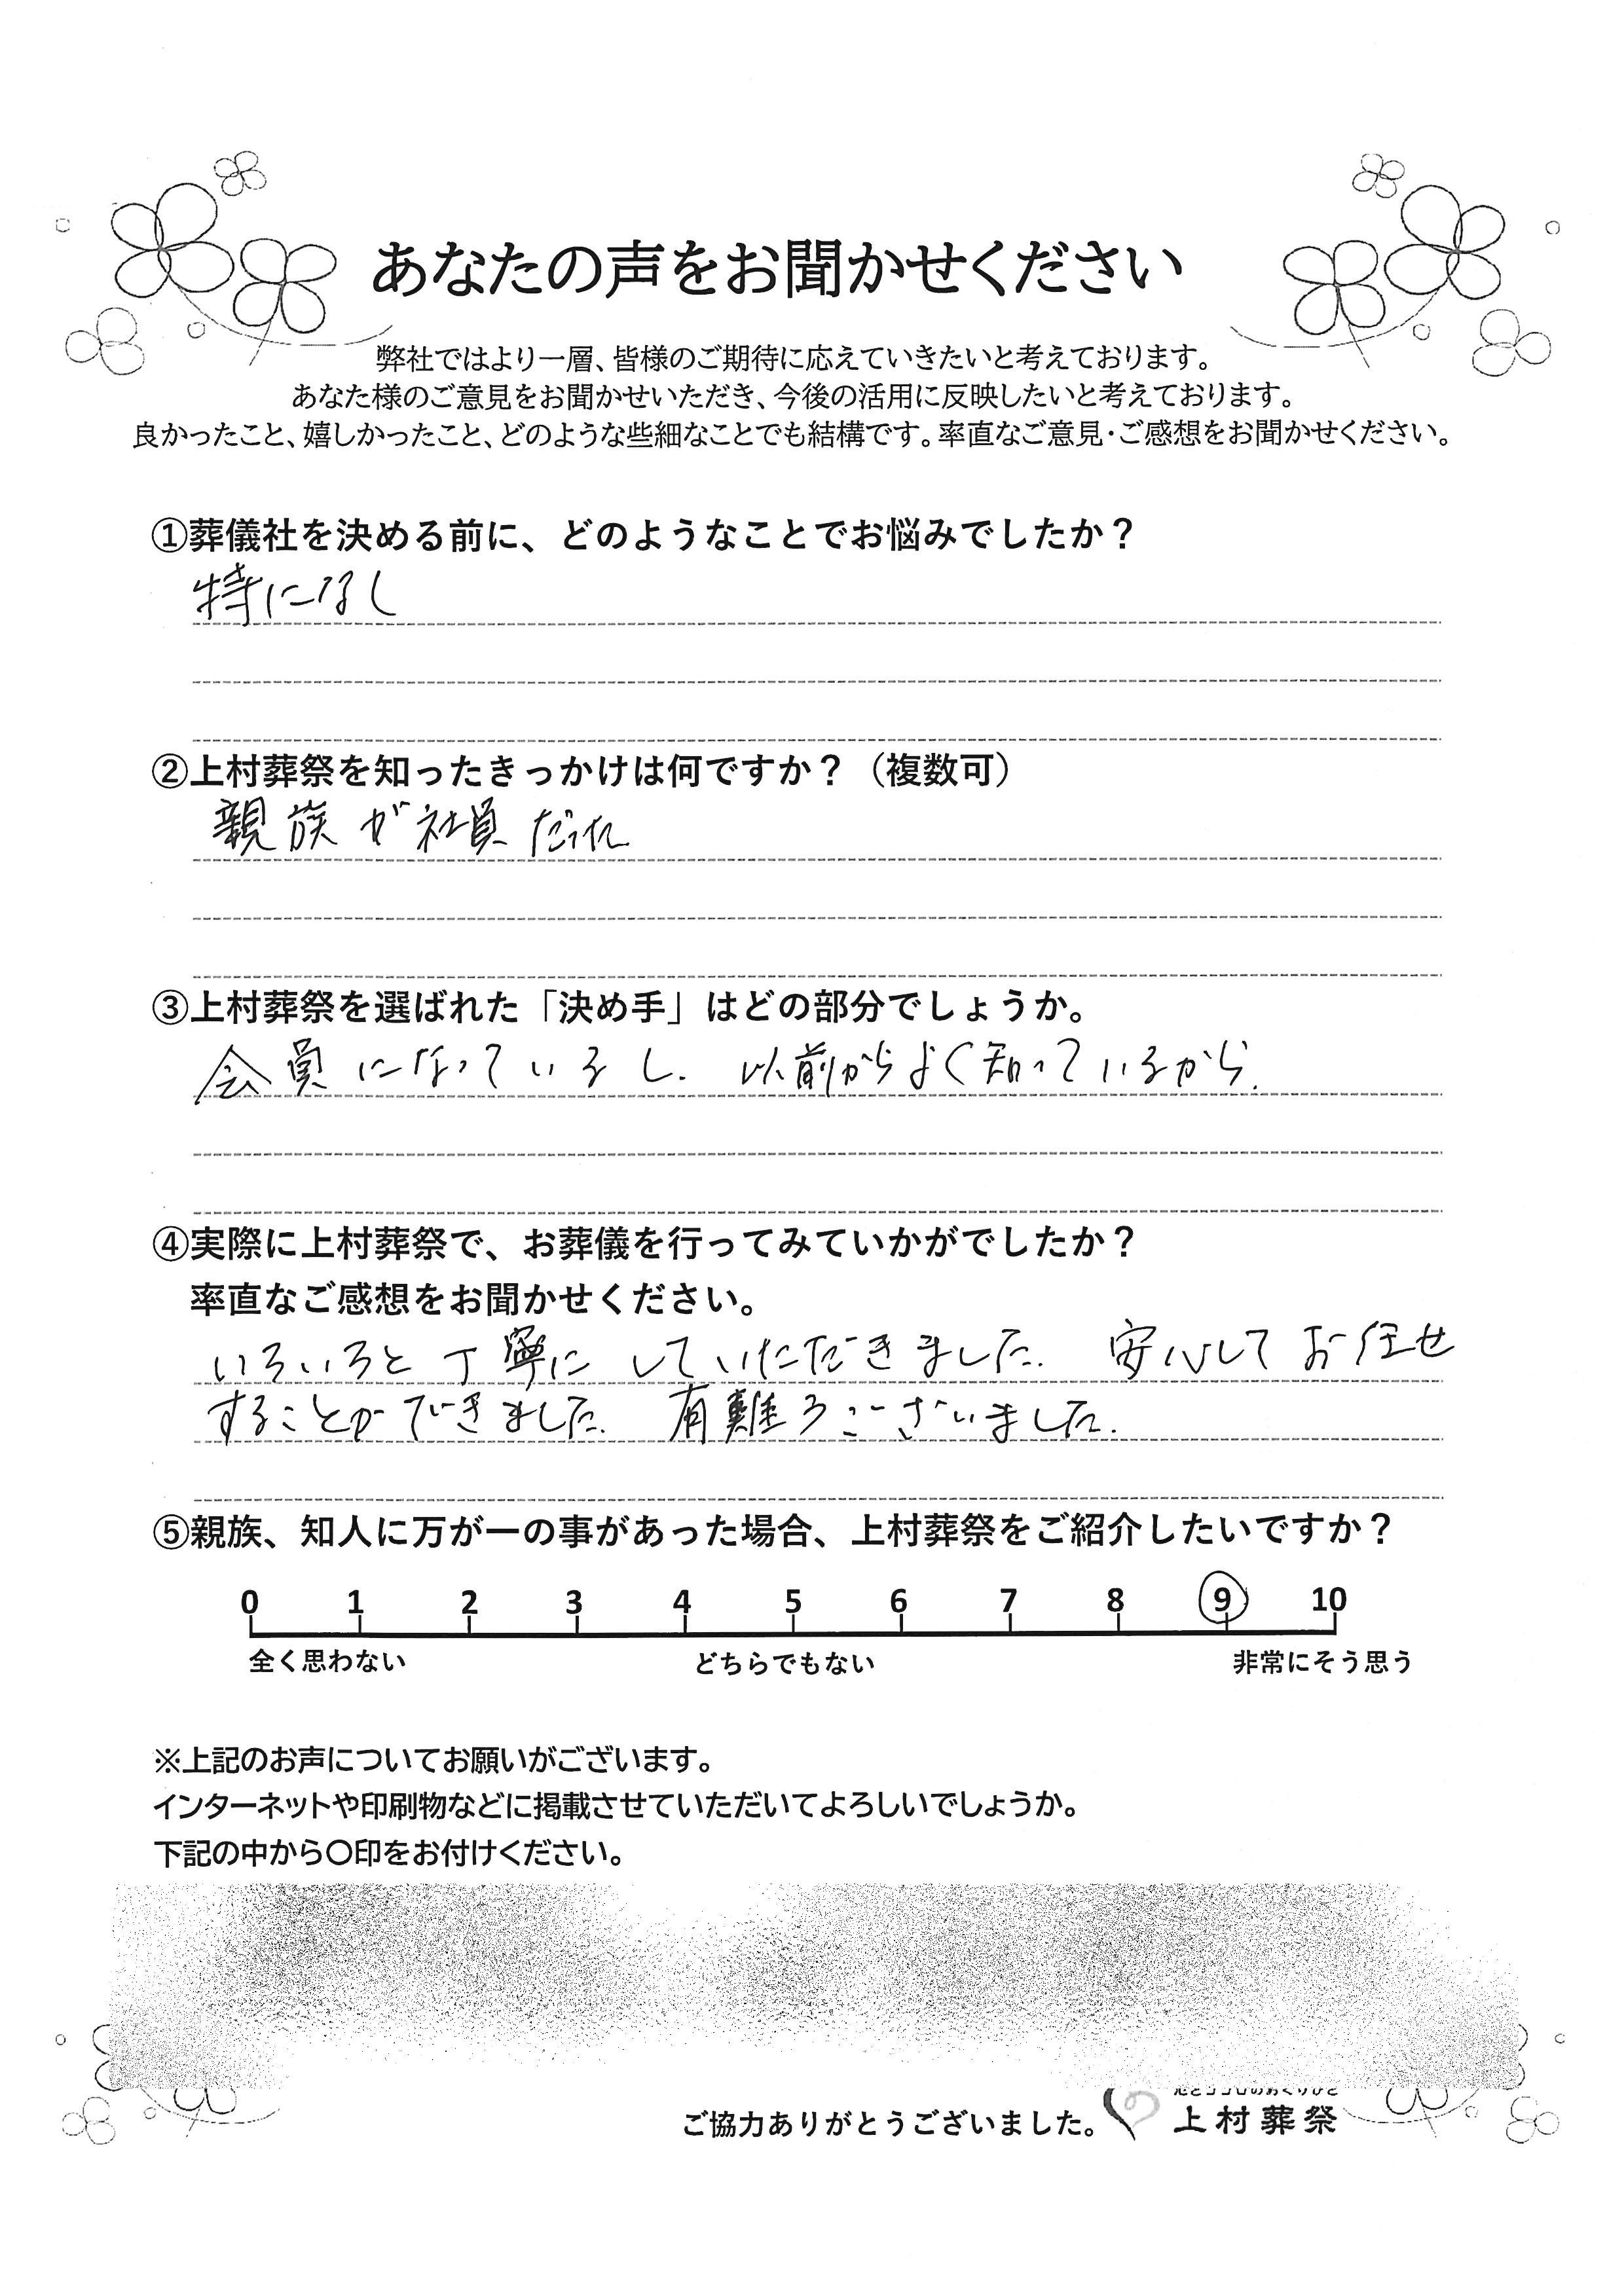 あなたの声をお聞かせください
弊社ではより一層、皆様のご期待に応えていきたいと考えております。
あなた様のご意見をお聞かせいただき、今後の活用に反映したいと考えております。
良かったこと、嬉しかったこと、どのような些細なことでも結構です。率直なご意見・ご感想をお聞かせください。
①葬儀社を決める前に、どのようなことでお悩みでしたか？
特になし
②上村葬祭を知ったきっかけは何ですか？（複数可）
親族が社員だった
③上村葬祭を選ばれた「決め手」はどの部分でしょうか。
会員になっているし、以前からよく知っているから。
④実際に上村葬祭で、お葬儀を行ってみていかがでしたか？
率直なご感想をお聞かせください。
いろいろと丁寧にしていただきました。安心してお任せ
することができました。有難うございました。
⑤親族、知人に万が一の事があった場合、上村葬祭をご紹介したいですか？
0 1 2 3 4 5 6 7 8 9 10
全く思わない どちらでもない 非常にそう思う
※上記のお声についてお願いがございます。
インターネットや印刷物などに掲載させていただいてよろしいでしょうか。
下記の中から〇印をお付けください。
ご協力ありがとうございました。 上村葬祭